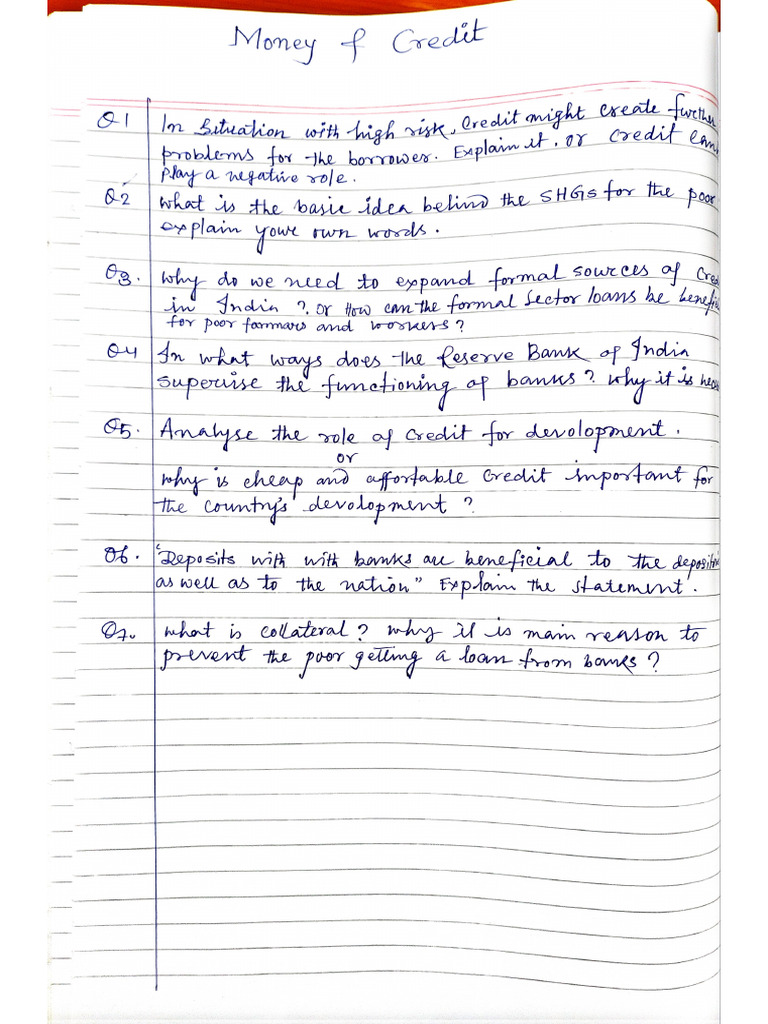 Money & Credit
Q1 In Situation with high risk, Credit might create further
problems for the borrower. Explain it, or Credit can
play a negative role.
Q2 What is the basic idea behind the SHGs for the poor
explain your own words.
Q3. Why do we need to expand formal sources of Cred
in India ? or How can the formal Sector loans be benefi
for poor farmars and workers?
Q4 In what ways does the Reserve Bank of India
Supervise the functioning of banks? Why it is nece
Q5. Analyse the role of credit for devolopment.
or
Why is cheap and affortable Credit important for
the Country's devolopment ?
Q6. "Deposits with with banks are beneficial to the deposito
as well as to the nation" Explain the statement.
Q7. What is Collateral? Why it is main reason to
prevent the poor getting a loan from banks?